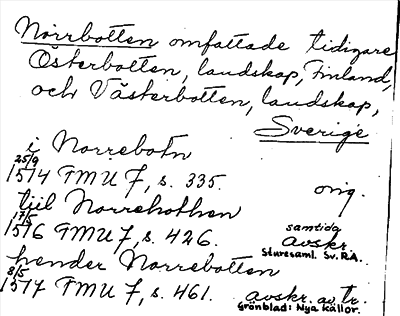 Norrbotten omfattade tidigare
Österbotten, landskap, Finland,
och Västerbotten, landskap,
Sverige
i Norrebotn
25/9
1514 FMU 7, s. 335. orig.
tiil Norrebothen
17/5
1516 FMU 7, s. 426. samtida avskr.
Sturesaml. Sv. R.A.
hender Norrebotten
8/5
1517 FMU 7, s. 461. avskr. av tr.
Grönblad: Nya källor.